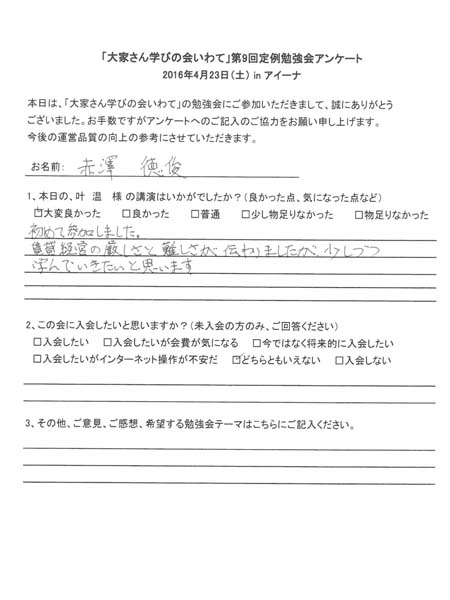 「大家さん学びの会いわて」第9回定例勉強会アンケート
2016年4月23日(土) in アイーナ
本日は、「大家さん学びの会いわて」の勉強会にご参加いただきまして、誠にありがとう
ございました。お手数ですがアンケートへのご記入のご協力をお願い申し上げます。
今後の運営品質の向上の参考にさせていただきます。
お名前: 赤澤 徳俊
1、本日の、叶 温 様 の講演はいかがでしたか?(良かった点、気になった点など)
☑大変良かった □良かった □普通 □少し物足りなかった □物足りなかった
初めて参加しました。
賃貸経営の厳しさと難しさが伝わりましたが、少しづつ
学んでいきたいと思います
2、この会に入会したいと思いますか?(未入会の方のみ、ご回答ください)
□入会したい □入会したいが会費が気になる □今ではなく将来的に入会したい
□入会したいがインターネット操作が不安だ ☑どちらともいえない □入会しない
3、その他、ご意見、ご感想、希望する勉強会テーマはこちらにご記入ください。